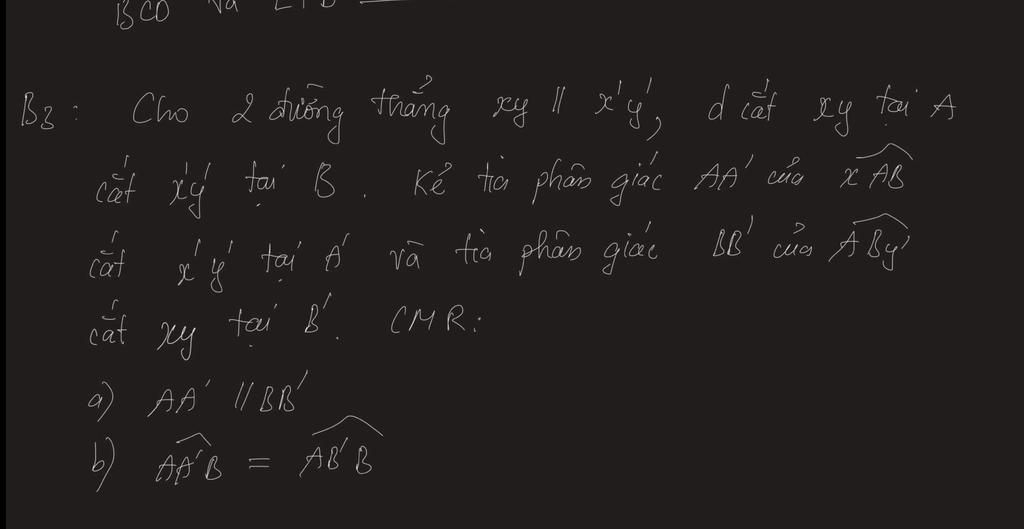 BCD và
B3: Cho 2 đường thẳng xy // x'y', d cắt xy tại A
cắt x'y' tại B. Kẻ tia phân giác AA' của xAB
cắt x'y' tại A' và tia phân giác BB' của ABy'
cắt xy tại B'. CMR:
a) AA' // BB'
b) AA'B = AB'B